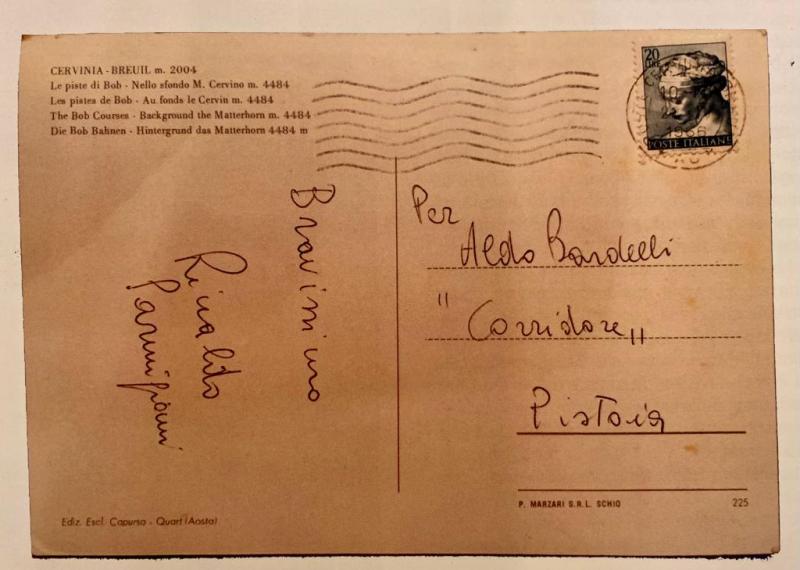 CERVINIA - BREUIL m. 2004
Le piste di Bob - Nello sfondo M. Cervino m. 4484
Les pistes de Bob - Au fonds le Cervin m. 4484
The Bob Courses - Background the Matterhorn m. 4484
Die Bob Bahnen - Hintergrund das Matterhorn 4484 m
20
LIRE
1966
POSTE ITALIANE
Bravissimo
Rinaldo
Parmigiani
Per
Aldo Bardelli
"Corridore"
Pistoia
P. MARZARI S.R.L. SCHIO
225
Ediz. Escl. Capurso - Quart (Aosta)